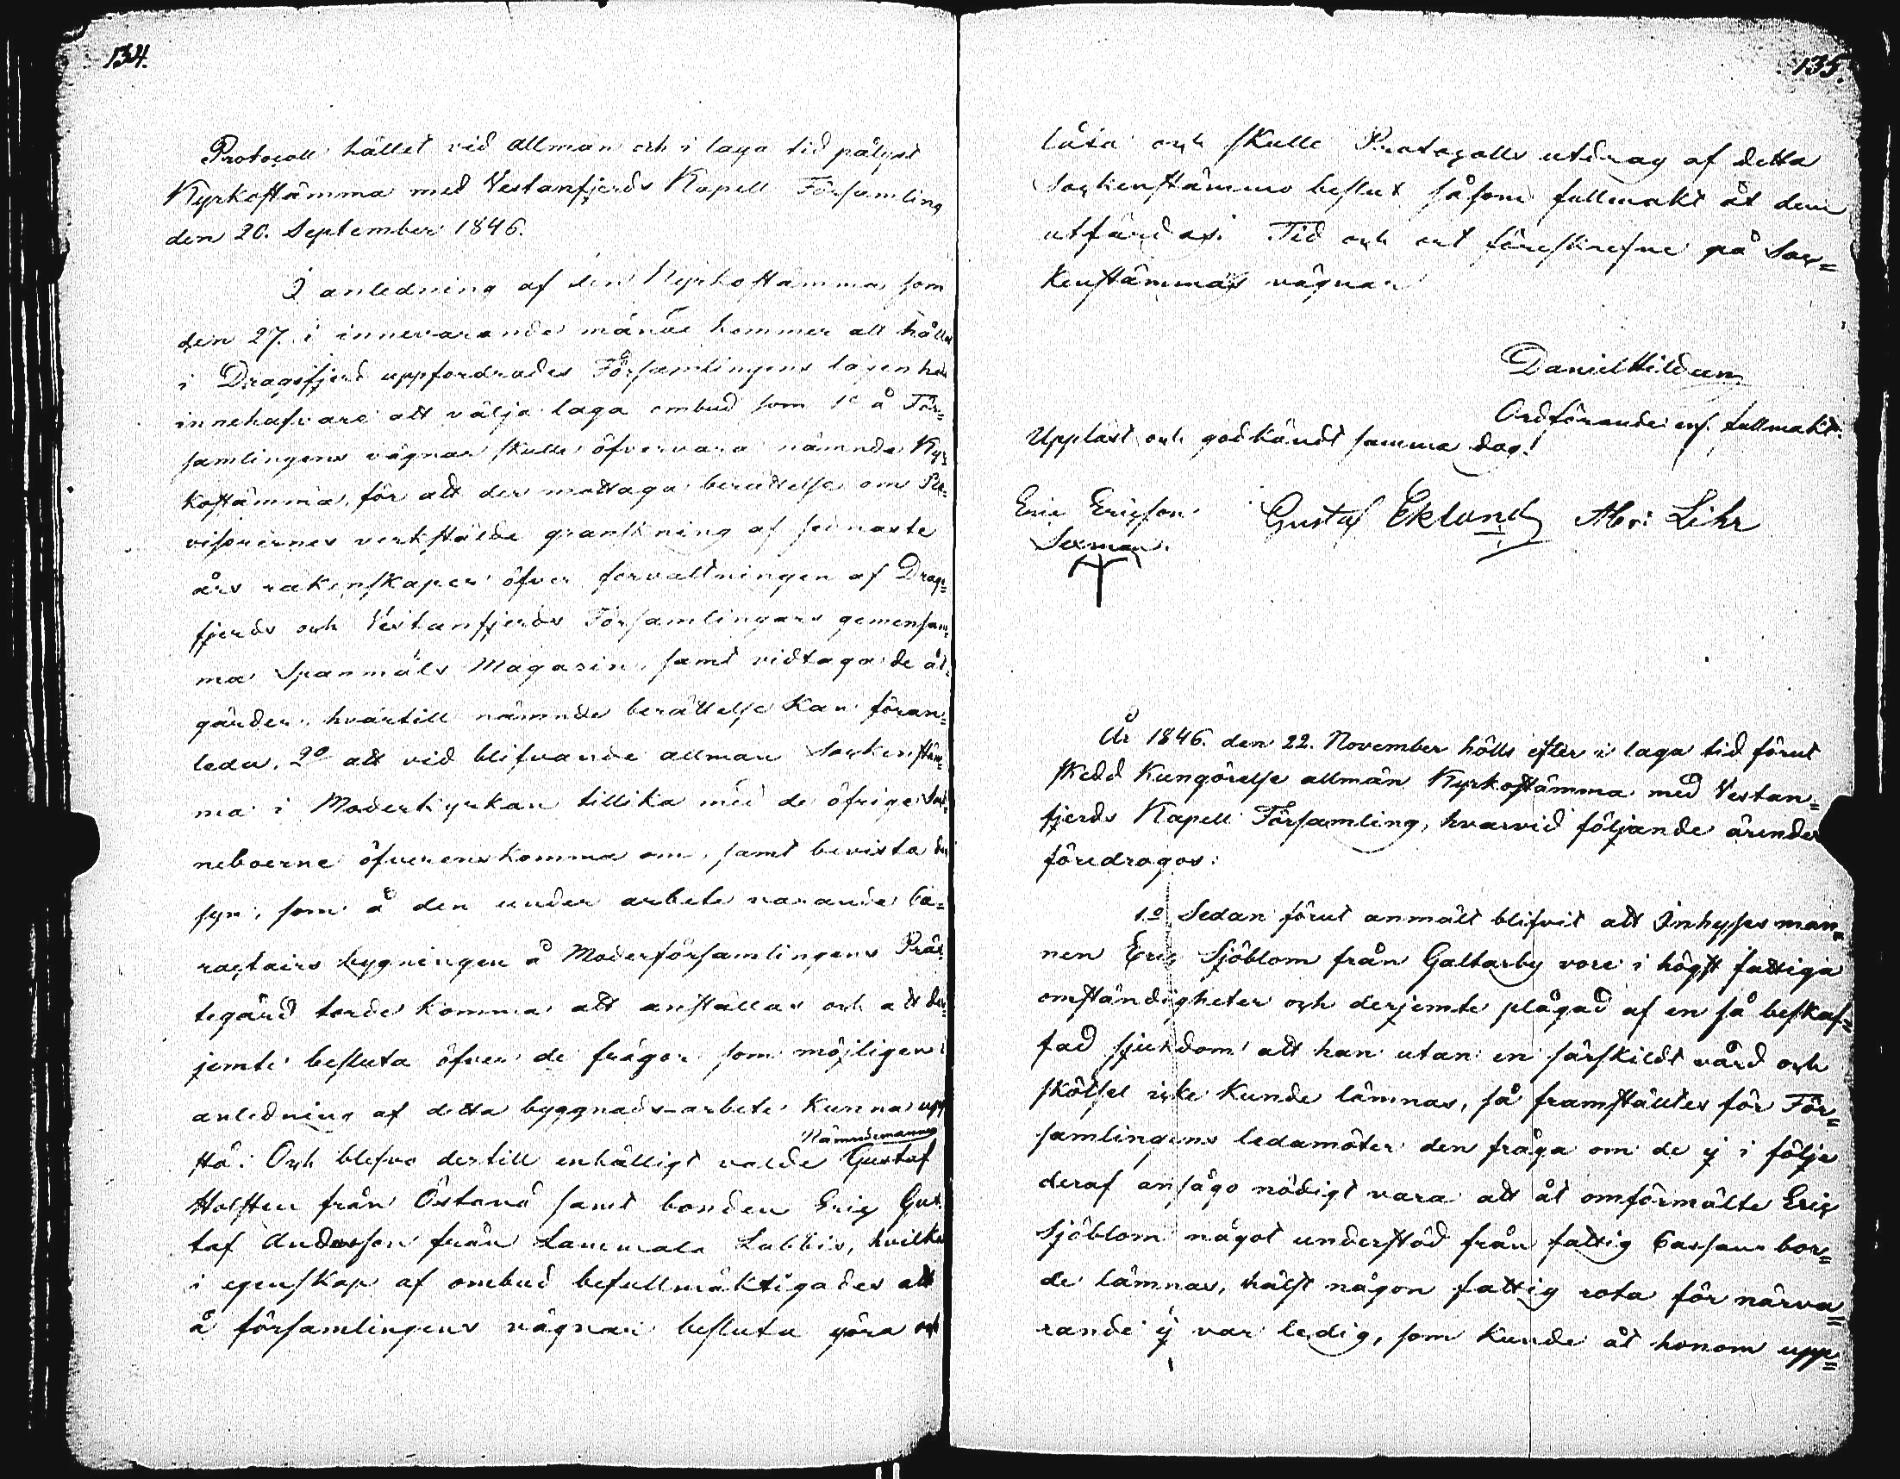 134.
Protocoll hållet vid allmän och i laga tid pålyst
Kyrkostämma med Vestanfjerds Kapell Församling
den 20. September 1846.
I anledning af den Kyrkostämma som
den 27. i innevarande månad kommer att hållas
i Dragsfjerd uppfordrades Församlingens lägenhets
innehafvare att välja laga ombud som 1o å För=
samlingens vägnar skulle öfvervara nämnde Kyr
kostämma, för att der mottaga berättelse om Re=
visorernes verkställde granskning af sednaste
års räkenskaper öfver förvaltningen af Drags=
fjerds och Vestanfjerds Församlingars gemensam=
ma Spanmåls Magasin, samt vidtaga de åt=
gärder, hvartill nämnde berättelse kan föran=
leda, 2o att vid blifvande allmän Sockenstäm=
ma i Moderkyrkan tillika med de öfrige Sock=
neboerne öfverenskomma om, samt bevista den
syn, som å den under arbete varande Ca=
ractairs bygningen å Moderförsamlingens Präs
tegård torde komma att anställas och att der=
jemte besluta öfver de frågor som möjligen i
anledning af detta byggnads-arbete kunna upp
Nämndemannen
stå. Och blefvo dertill enhälligt valde Gustaf
Holsten från Östanå samt bonden Eric Gus
taf Andersson från Lammala Labbis, hvilka
i egenskap af ombud befullmäktigades att
å församlingens vägnar besluta göra och
135.
låta och skulle Protocolls utdrag af detta
Sockenstämmo beslut såsom fullmakt åt dem
utfärdas. Tid och ort föreskrefne på Soc=
kenstämmas vägnar
Daniel Hildeen
Ordförande enl. fullmakt.
Uppläst och godkändt samma dag!
Eric Ericsson Gustaf Eklund Abr: Lihr
Sexman.
År 1846. den 22. November hölls efter i laga tid förut
skedd kungörelse allmän Kyrkostämma med Vestan=
fjerds Kapell Församling, hvarvid följande ärender
föredrogos:
1o Sedan förut anmält blifvit att Inhyses man=
nen Eric Sjöblom från Galtarby vore i högst fattiga
omständigheter och derjemte plågad af en så beskaf=
fad sjukdom att han utan en särskildt vård och
skötsel icke kunde lämnas, så framställtes för För=
samlingens ledamöter den fråga om de ej i följe
deraf ansågo nödigt vara att åt omförmälte Eric
Sjöblom något understöd från fattig Cassan bor=
de lämnas, hälst någon fattig rota för närva=
rande ej var ledig, som kunde åt honom upp=